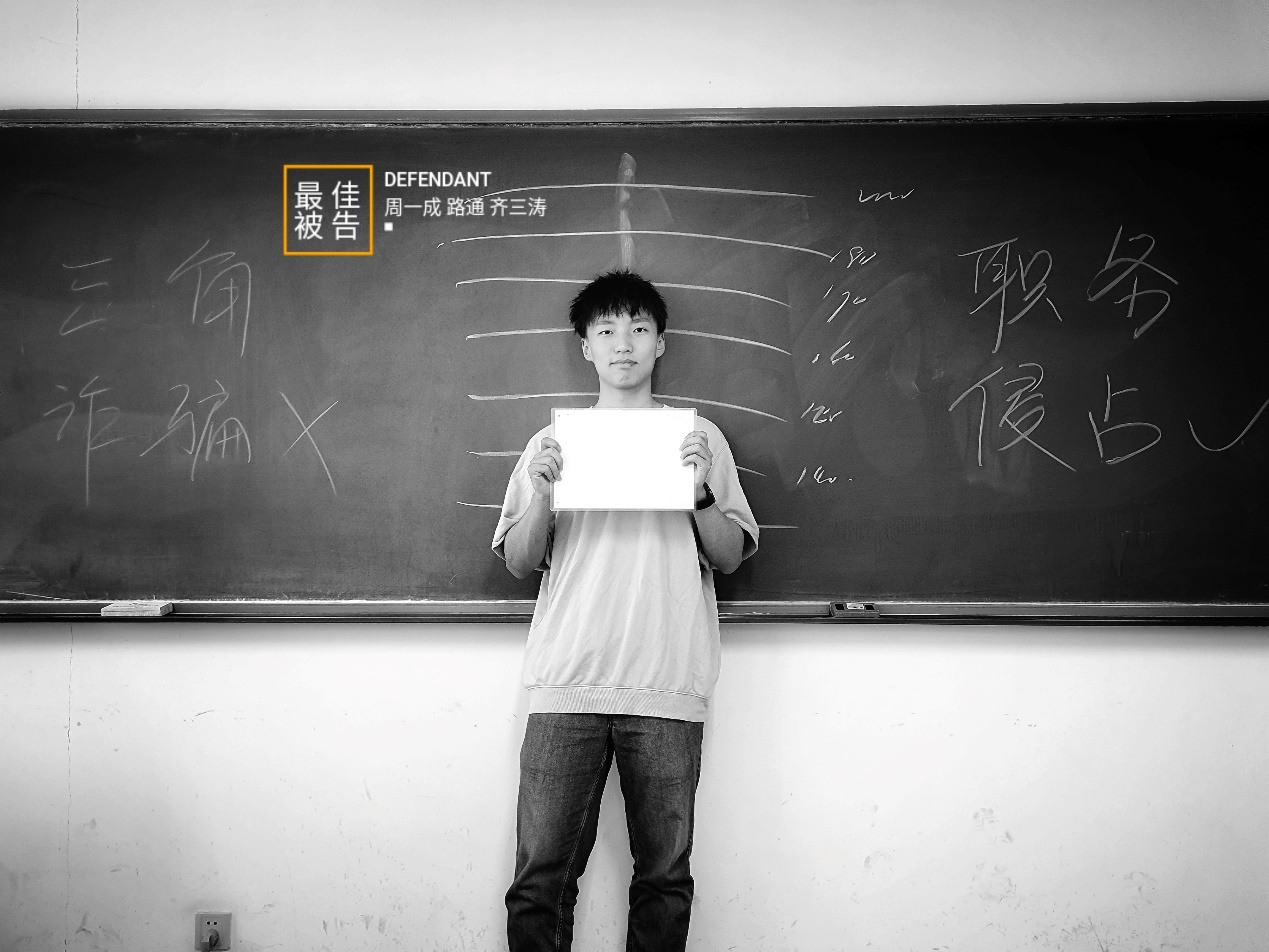 最佳
被告
DEFENDANT
周一成 路通 齐三涛
三角
诈骗 X
180
170
160
150
140
职务
侵占 ✓